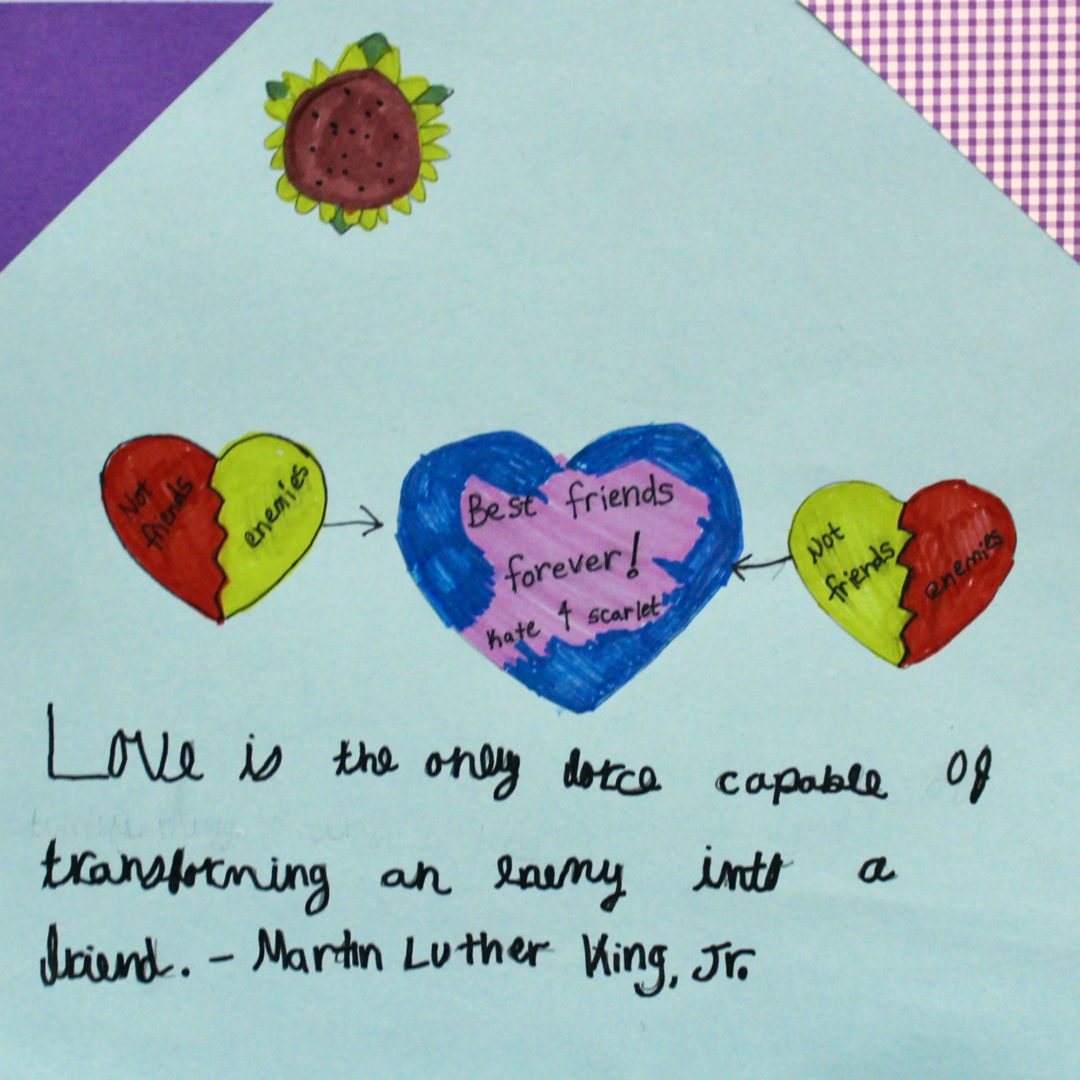 Not
friends
enemies
Best friends
forever!
Kate & scarlet
Not
friends
enemies
Love is the only force capable of
transforming an enemy into a
friend. – Martin Luther King, Jr.